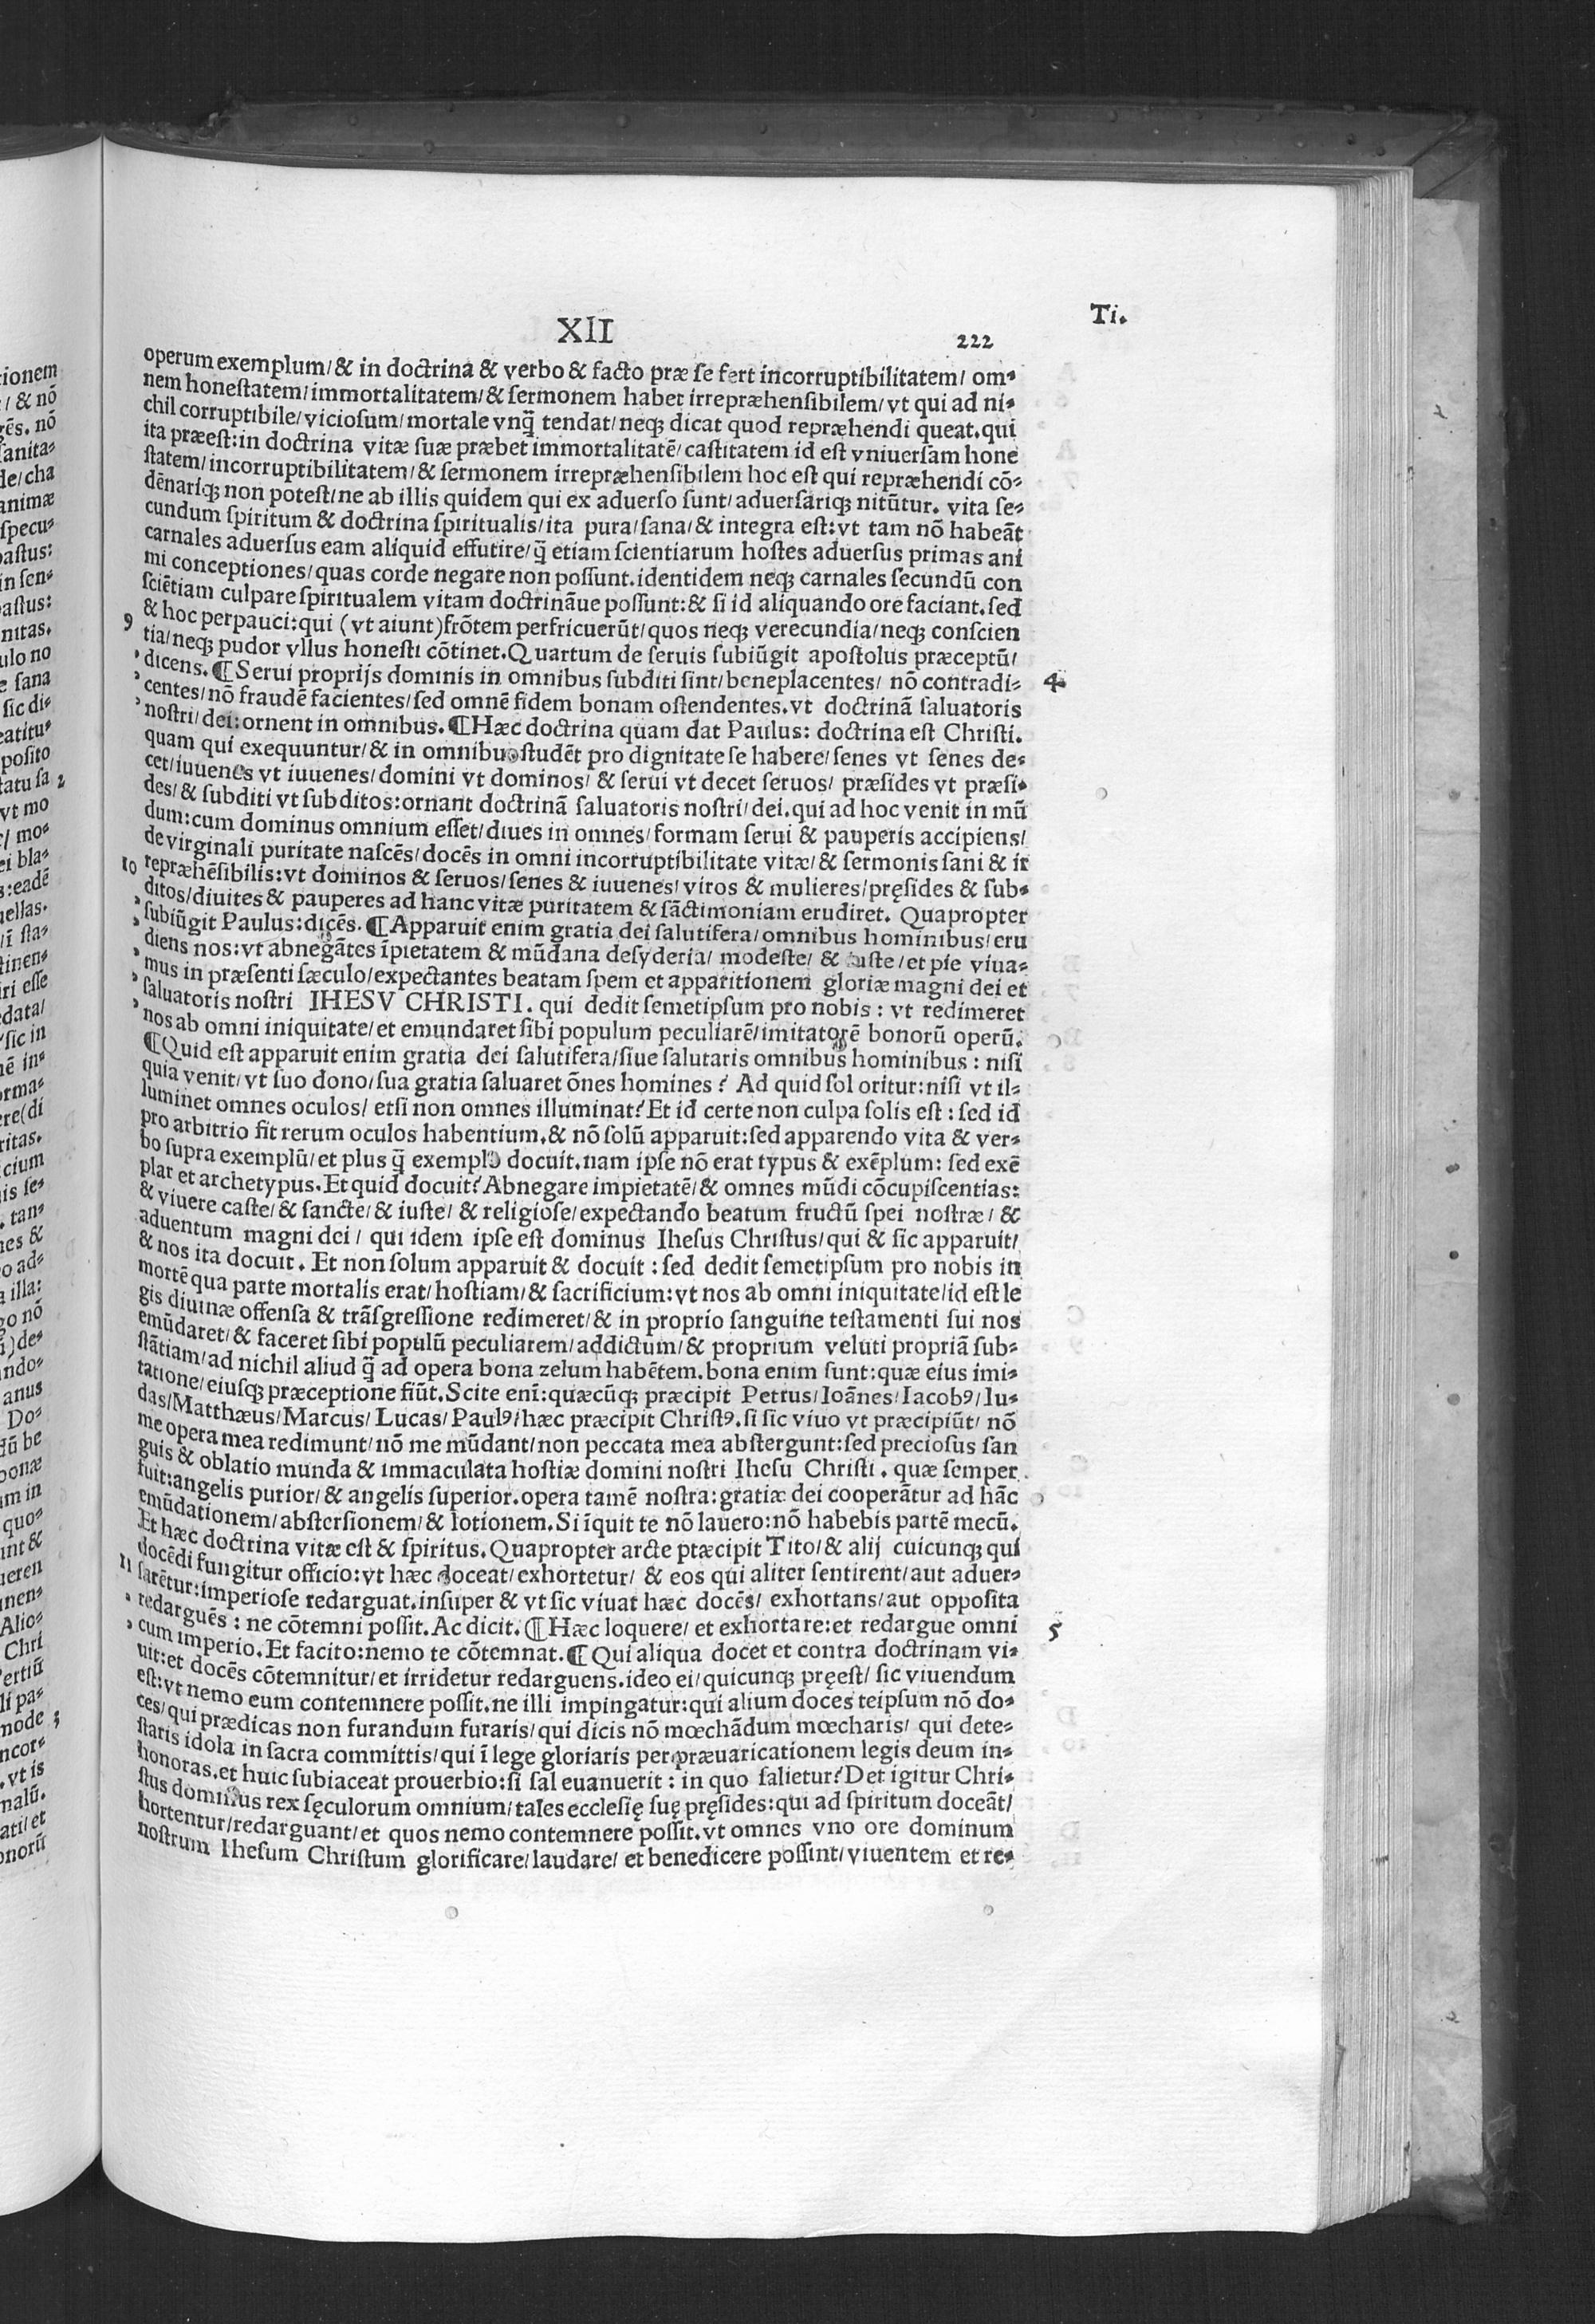 Ti.
XII
222
operum exemplum/ & in doctrina & verbo & facto præ se fert incorruptibilitatem/ om-
nem honestatem/ immortalitatem/ & sermonem habet irrepræhensibilem/ vt qui ad ni-
chil corruptibile/ viciosum/ mortale vnq̃ tendat/ neq; dicat quod repræhendi queat. qui
ita præest: in doctrina vitæ suæ præbet immortalitatẽ/ castitatem id est vniuersam hone
statem/ incorruptibilitatem/ & sermonem irrepræhensibilem hoc est qui repræhendi cõ-
dẽnariq; non potest/ ne ab illis quidem qui ex aduerso sunt/ aduersariq; nitũtur. vita se-
cundum spiritum & doctrina spiritualis/ ita pura/ sana/ & integra est: vt tam nõ habeãt
carnales aduersus eam aliquid effutire/ q̃ etiam scientiarum hostes aduersus primas ani
mi conceptiones/ quas corde negare non possunt. identidem neq; carnales secundũ con
sciẽtiam culpare spiritualem vitam doctrinãue possunt: & si id aliquando ore faciant. sed
& hoc perpauci: qui (vt aiunt) frõtem perfricuerũt/ quos neq; verecundia/ neq; conscien
9 tia/ neq; pudor vllus honesti cõtinet. Quartum de seruis subiũgit apostolus præceptũ/
dicens. ¶ Serui proprijs dominis in omnibus subditi sint/ beneplacentes/ nõ contradi- 4
centes/ nõ fraudẽ facientes/ sed omnẽ fidem bonam ostendentes. vt doctrinã saluatoris
nostri/ dei: ornent in omnibus. ¶ Hæc doctrina quam dat Paulus: doctrina est Christi.
quam qui exequuntur/ & in omnibus studẽt pro dignitate se habere/ senes vt senes de-
cet/ iuuenes vt iuuenes/ domini vt dominos/ & serui vt decet seruos/ præsides vt præsi-
des/ & subditi vt subditos: ornant doctrinã saluatoris nostri/ dei. qui ad hoc venit in mũ
dum: cum dominus omnium esset/ diues in omnes/ formam serui & pauperis accipiens/
de virginali puritate nascẽs/ docẽs in omni incorruptibilitate vitæ/ & sermonis sani & ir
10 repræhẽsibilis: vt dominos & seruos/ senes & iuuenes/ viros & mulieres/ pręsides & sub-
ditos/ diuites & pauperes ad hanc vitæ puritatem & sãctimoniam erudiret. Quapropter
subiũgit Paulus: dicẽs. ¶ Apparuit enim gratia dei salutifera/ omnibus hominibus/ eru
diens nos: vt abnegãtes ĩpietatem & mũdana desyderia/ modeste/ & iuste/ et pie viua-
mus in præsenti sæculo/ expectantes beatam spem et apparitionem gloriæ magni dei et
saluatoris nostri IHESV CHRISTI. qui dedit semetipsum pro nobis: vt redimeret
nos ab omni iniquitate/ et emundaret sibi populum peculiarẽ/ imitatorẽ bonorũ operũ.
¶ Quid est apparuit enim gratia dei salutifera/ siue salutaris omnibus hominibus: nisi
quia venit/ vt suo dono/ sua gratia saluaret õnes homines? Ad quid sol oritur: nisi vt il-
luminet omnes oculos/ etsi non omnes illuminat? Et id certe non culpa solis est: sed id
pro arbitrio fit rerum oculos habentium. & nõ solũ apparuit: sed apparendo vita & ver-
bo supra exemplũ/ et plus q̃ exemplo docuit. nam ipse nõ erat typus & exẽplum: sed exẽ
plar et archetypus. Et quid docuit? Abnegare impietatẽ/ & omnes mũdi cõcupiscentias:
& viuere caste/ & sancte/ & iuste/ & religiose/ expectando beatum fructũ spei nostræ/ &
aduentum magni dei/ qui idem ipse est dominus Ihesus Christus/ qui & sic apparuit/
& nos ita docuit. Et non solum apparuit & docuit: sed dedit semetipsum pro nobis in
mortẽ qua parte mortalis erat/ hostiam/ & sacrificium: vt nos ab omni iniquitate/ id est le
gis diuinæ offensa & trãsgressione redimeret/ & in proprio sanguine testamenti sui nos
emũdaret/ & faceret sibi populũ peculiarem/ addictum/ & proprium veluti propriã sub-
stãtiam/ ad nichil aliud q̃ ad opera bona zelum habẽtem. bona enim sunt: quæ eius imi-
tatione/ eiusq; præceptione fiũt. Scite enĩ: quæcũq; præcipit Petrus/ Ioãnes/ Iacobꝰ/ Iu-
das/ Matthæus/ Marcus/ Lucas/ Paulꝰ/ hæc præcipit Christꝰ. si sic viuo vt præcipiũt/ nõ
me opera mea redimunt/ nõ me mũdant/ non peccata mea abstergunt: sed preciosus san
guis & oblatio munda & immaculata hostiæ domini nostri Ihesu Christi. quæ semper
fuit: angelis purior/ & angelis superior. opera tamẽ nostra: gratiæ dei cooperãtur ad hãc
emũdationem/ abstersionem/ & lotionem. Si ĩquit te nõ lauero: nõ habebis partẽ mecũ.
Et hæc doctrina vitæ est & spiritus. Quapropter arcte præcipit Tito/ & alij cuicunq; qui
docẽdi fungitur officio: vt hæc doceat/ exhortetur/ & eos qui aliter sentirent/ aut aduer-
11 sarẽtur: imperiose redarguat. insuper & vt sic viuat hæc docẽs/ exhortans/ aut opposita
redarguẽs: ne cõtemni possit. Ac dicit. ¶ Hæc loquere/ et exhortare: et redargue omni 5
cum imperio. Et facito: nemo te cõtemnat. ¶ Qui aliqua docet et contra doctrinam vi-
uit: et docẽs cõtemnitur/ et irridetur redarguens. ideo ei/ quicunq; pręest/ sic viuendum
est: vt nemo eum contemnere possit. ne illi impingatur: qui alium doces teipsum nõ do-
ces/ qui prædicas non furandum furaris/ qui dicis nõ mœchãdum mœcharis/ qui dete-
staris idola in sacra committis/ qui ĩ lege gloriaris per præuaricationem legis deum in-
honoras. et huic subiaceat prouerbio: si sal euanuerit: in quo salietur? Det igitur Chri-
stus dominus rex sęculorum omnium/ tales ecclesię suę pręsides: qui ad spiritum doceãt/
hortentur/ redarguant/ et quos nemo contemnere possit. vt omnes vno ore dominum
nostrum Ihesum Christum glorificare/ laudare/ et benedicere possint/ viuentem et re-